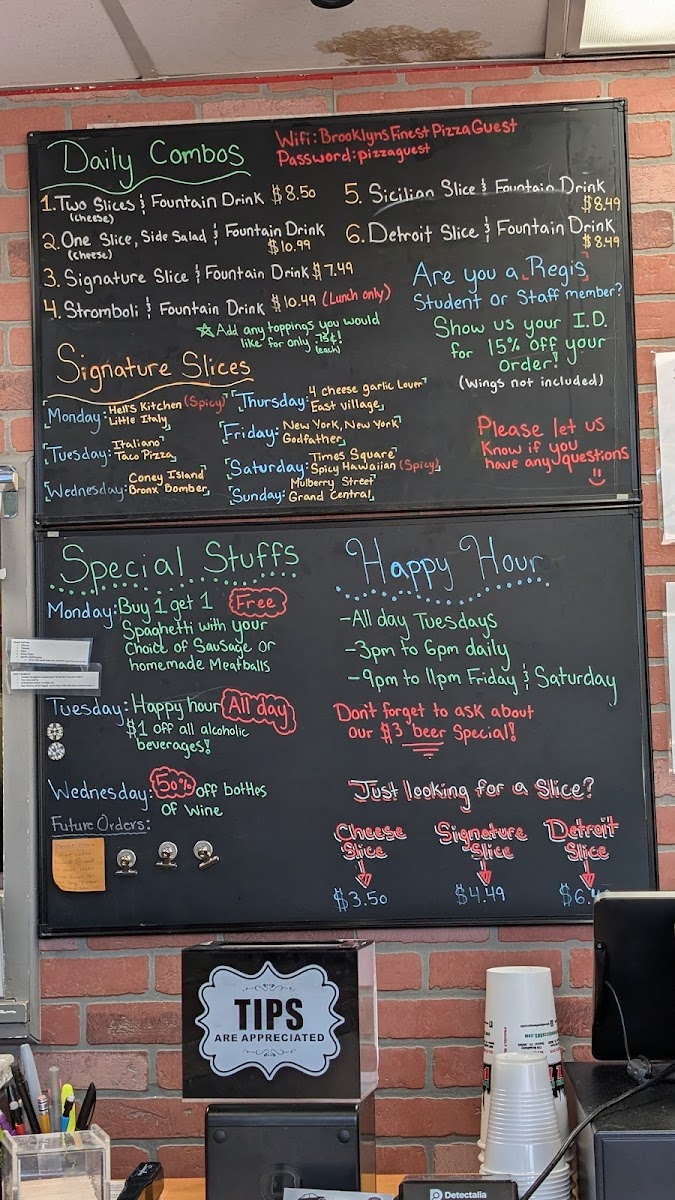 Wifi: BrooklynsFinestPizzaGuest
Password: pizzaguest
Daily Combos
1. Two Slices & Fountain Drink $8.50
(cheese)
2. One Slice, Side Salad & Fountain Drink
(cheese) $10.99
3. Signature Slice & Fountain Drink $7.49
4. Stromboli & Fountain Drink $10.49 (Lunch only)
☆Add any toppings you would
like for only .75¢!
(each)
5. Sicilian Slice & Fountain Drink
$8.49
6. Detroit Slice & Fountain Drink
$8.49
Are you a Regis
Student or Staff member?
Show us your I.D.
for 15% off your
order!
(Wings not included)
Please let us
Know if you
have any questions
Signature Slices
Monday: Hell's Kitchen (Spicy)
Little Italy
Tuesday: Italiano
Taco Pizza
Wednesday: Coney Island
Bronx Bomber
Thursday: 4 cheese garlic Lover
East village
Friday: New York, New York
Godfather
Saturday: Times Square
Spicy Hawaiian (Spicy)
Sunday: Mulberry Street
Grand Central
Special Stuffs
Monday: Buy 1 get 1 Free
Spaghetti with your
Choice of Sausage or
homemade Meatballs
Tuesday: Happy hour All day
$1 off all alcoholic
beverages!
Wednesday: 50% off bottles
of Wine
Future Orders:
Happy Hour
-All day Tuesdays
-3pm to 6pm daily
-9pm to 11pm Friday & Saturday
Don't forget to ask about
our $3 beer Special!
Just looking for a Slice?
Cheese
Slice
$3.50
Signature
Slice
$4.49
Detroit
Slice
TIPS
ARE APPRECIATED
Detectalia